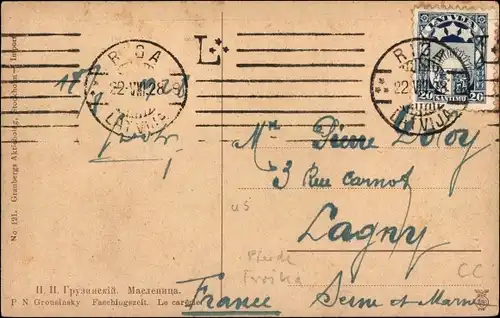 RIGA
22.VIII.28
LATVIJA
L
RIGA
22.VIII.28
LATVIJA
LATVIJA
20 SANTIMU 20
Mr Pierre
3 Rue Carnot
Lagny
Seine et Marne
France
US
Pferde
Troika
CC
No. 121. Granbergs Aktiebolag, Stockholm — Import
П. П. Грузинскій. Масленица.
P N Grousinsky Faschingszeit. Le carême